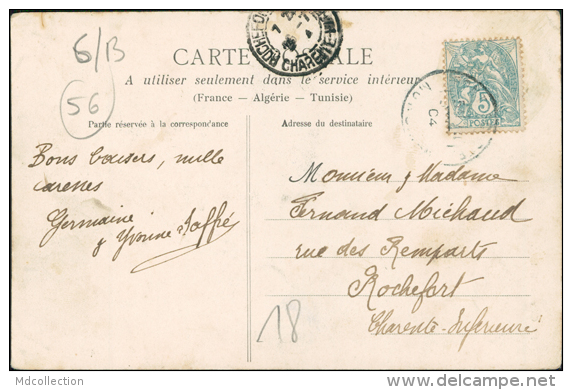 6/B
56
CARTE POSTALE
ROCHEFORT
CHARENTE
A utiliser seulement dans le service intérieur
(France - Algérie - Tunisie)
Partie réservée à la correspondance
Adresse du destinataire
5
POSTES
04
Bons baisers, mille
caresses
Germaine
& Yvonne Joffre
Monsieur & Madame
Fernand Michaud
rue des Remparts
Rochefort
Charente-Inferieure
18
Mdcollection
www.delcampe.net